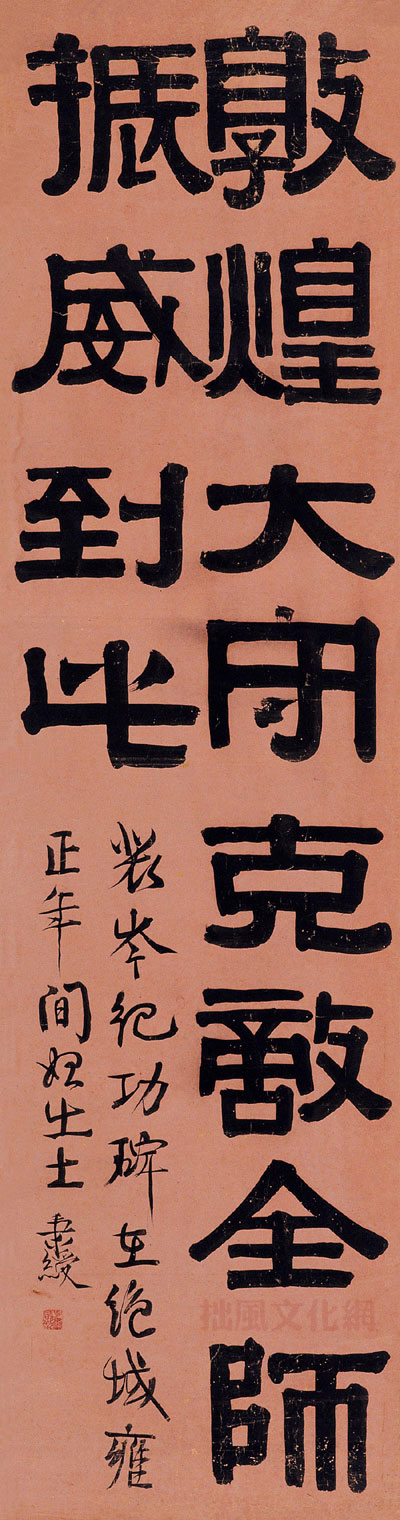 敦煌大守克敵全師
振威到此
裴岑纪功碑在绝域雍
正年间始出土 秉绶
拙風文化網